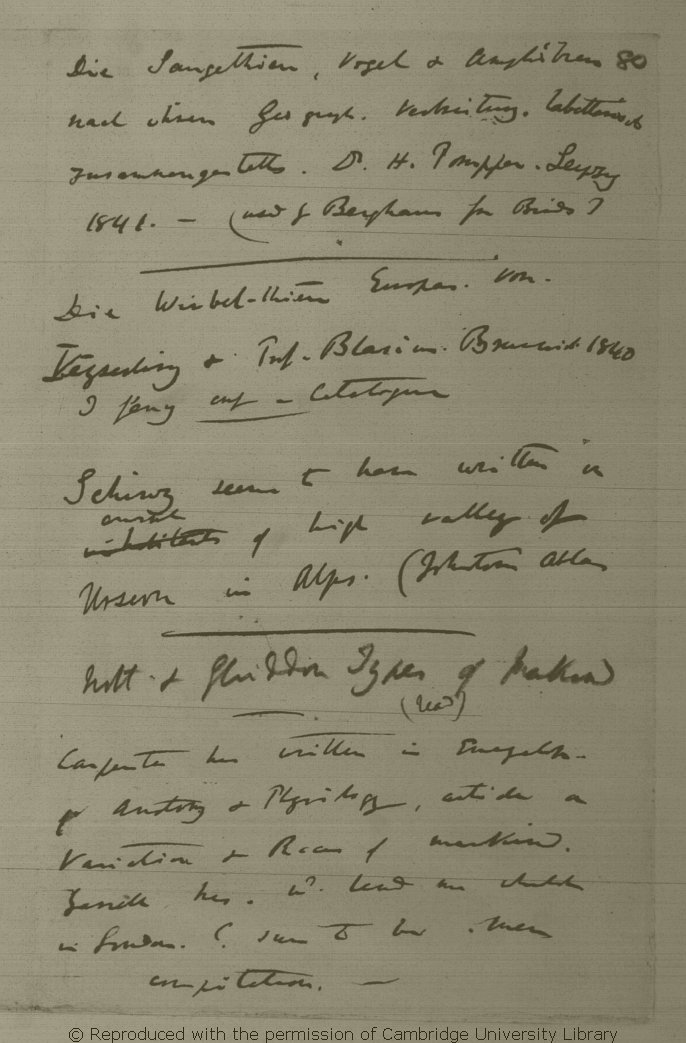 Die Saugethiere, Vogel & Amphibien 80
nach ihren Geograph. Verbreitung. tabellarisch
zusammengestellt. Dr. H. Pompper. Leipzig
1841. — (used by Berghaus for Birds?
Die Wirbel-thiere Europas. von.
Keyserling & Prof. Blasius. Brunswick. 1840
I fancy only a Catalogue
Schinz seems to have written on
animals
inhabitants of high valley of
Urseren in Alps. (Johnston's Atlas
Nott & Gliddon Types of Mankind
(read)
Carpenter has written in Encyclop.
of Anatomy & Physiology, article on
Variation & Races of mankind.
has. wd. lend me
in London. (? seem to be mere
compilation. —
© Reproduced with the permission of Cambridge University Library